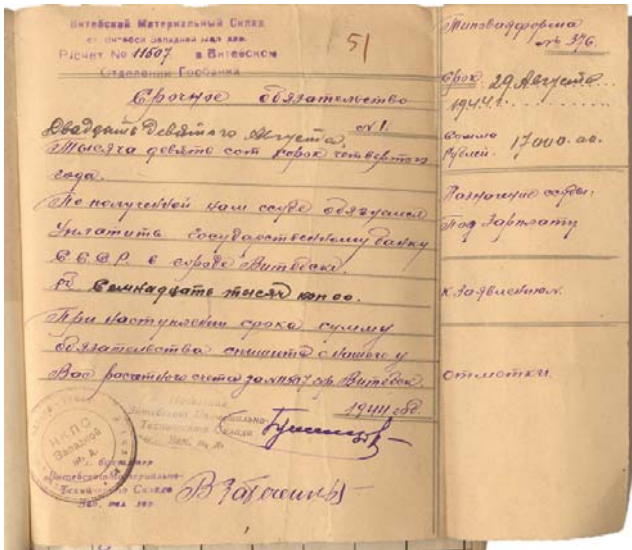 Витебский Материальный Склад
ст. Витебск Западной жел. дор.
Расчет № 11507 в Витебском
Отделении Госбанка
51
Срочное обязательство
№ 1.
Двадцать Девятого Августа
Тысяча девять сот сорок четвертого
года.
По полученной нам ссуде обязуемся
Уплатить Государственному банку
С.С.С.Р. в городе Витебске.
Семнадцать тысяч коп оо.
При наступлении срока сумму
обязательства спишите с нашего у
Вас расчетного счета за № 11507 гор. Витебск.
1944 год.
Витебского Материально-
Технического Склада
Зап. ж. д.
НКПС
Западной
ж. д.
Бухгалтер
Витебского Материально-
Технического Склада
Зап. жел. дор.
Типовая форма
№ 376.
Срок. 29 Августа
1944 г.
Сумма
Рублей. 17000.оо.
Назначение ссуды:
Под Зарплату
К Заявлению №.
Отметки.